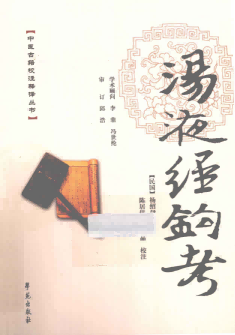 【中医古籍校注释译丛书】
学术顾问 李鼎 冯世纶
审订 邱浩
湯液經鉤考
【民国】杨绍
陈居
校注
学苑出版社